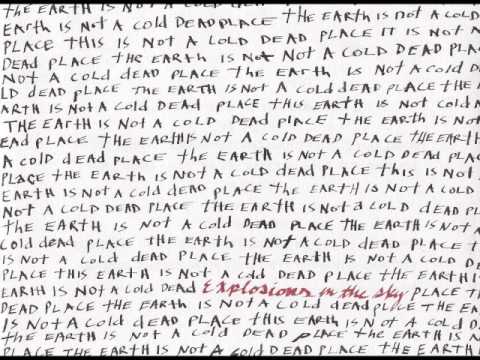 THE EARTH IS NOT A COLD DEAD PLACE THE EARTH IS NOT A COLD
EARTH IS NOT A COLD DEAD PLACE THE EARTH IS NOT A COLD
PLACE THIS IS NOT A COLD DEAD PLACE IT IS NOT A
DEAD PLACE THE EARTH IS NOT NOT A COLD DEAD PLACE
NOT A COLD DEAD PLACE THE EARTH IS NOT A COLD D
LD DEAD PLACE THE EARTH IS NOT A COLD DEAD PLACE THE E
ARTH IS NOT A COLD DEAD PLACE THIS EARTH IS NOT COLD A
THE EARTH IS NOT A COLD DEAD PLACE THE EARTH IS NOT
EAD PLACE THE EARTH IS NOT A COLD DEAD PLACE THE EARTH
A COLD DEAD PLACE THE EARTH IS NOT A COLD DEAD PLACE T
PLACE THE EARTH IS NOT A COLD DEAD PLACE THIS IS NOT
EARTH IS NOT A COLD DEAD PLACE THE EARTH IS NOT A COLD
NOT A COLD DEAD PLACE THE EARTH IS NOT A COLD DEAD PLACE
THE EARTH IS NOT A COLD DEAD PLACE THE EARTH IS NO
COLD DEAD PLACE THE EARTH IS NOT A COLD DEAD PLACE T
IS NOT A COLD DEAD PLACE THE EARTH IS NOT A COLD DEAD
PLACE THIS EARTH IS NOT A COLD DEAD PLACE THE EARTH IS
EARTH IS NOT A COLD DEAD Explosions in the sky PLACE T
DEAD PLACE THE EARTH IS NOT A COLD DEAD PLACE THE EA
IS NOT A COLD DEAD PLACE THIS EARTH IS NOT A COLD
EARTH IS NOT A COLD DEAD PLACE THE EARTH IS N
PLACE THE EARTH IS NOT A COLD DEAD PLACE THE EARTH I